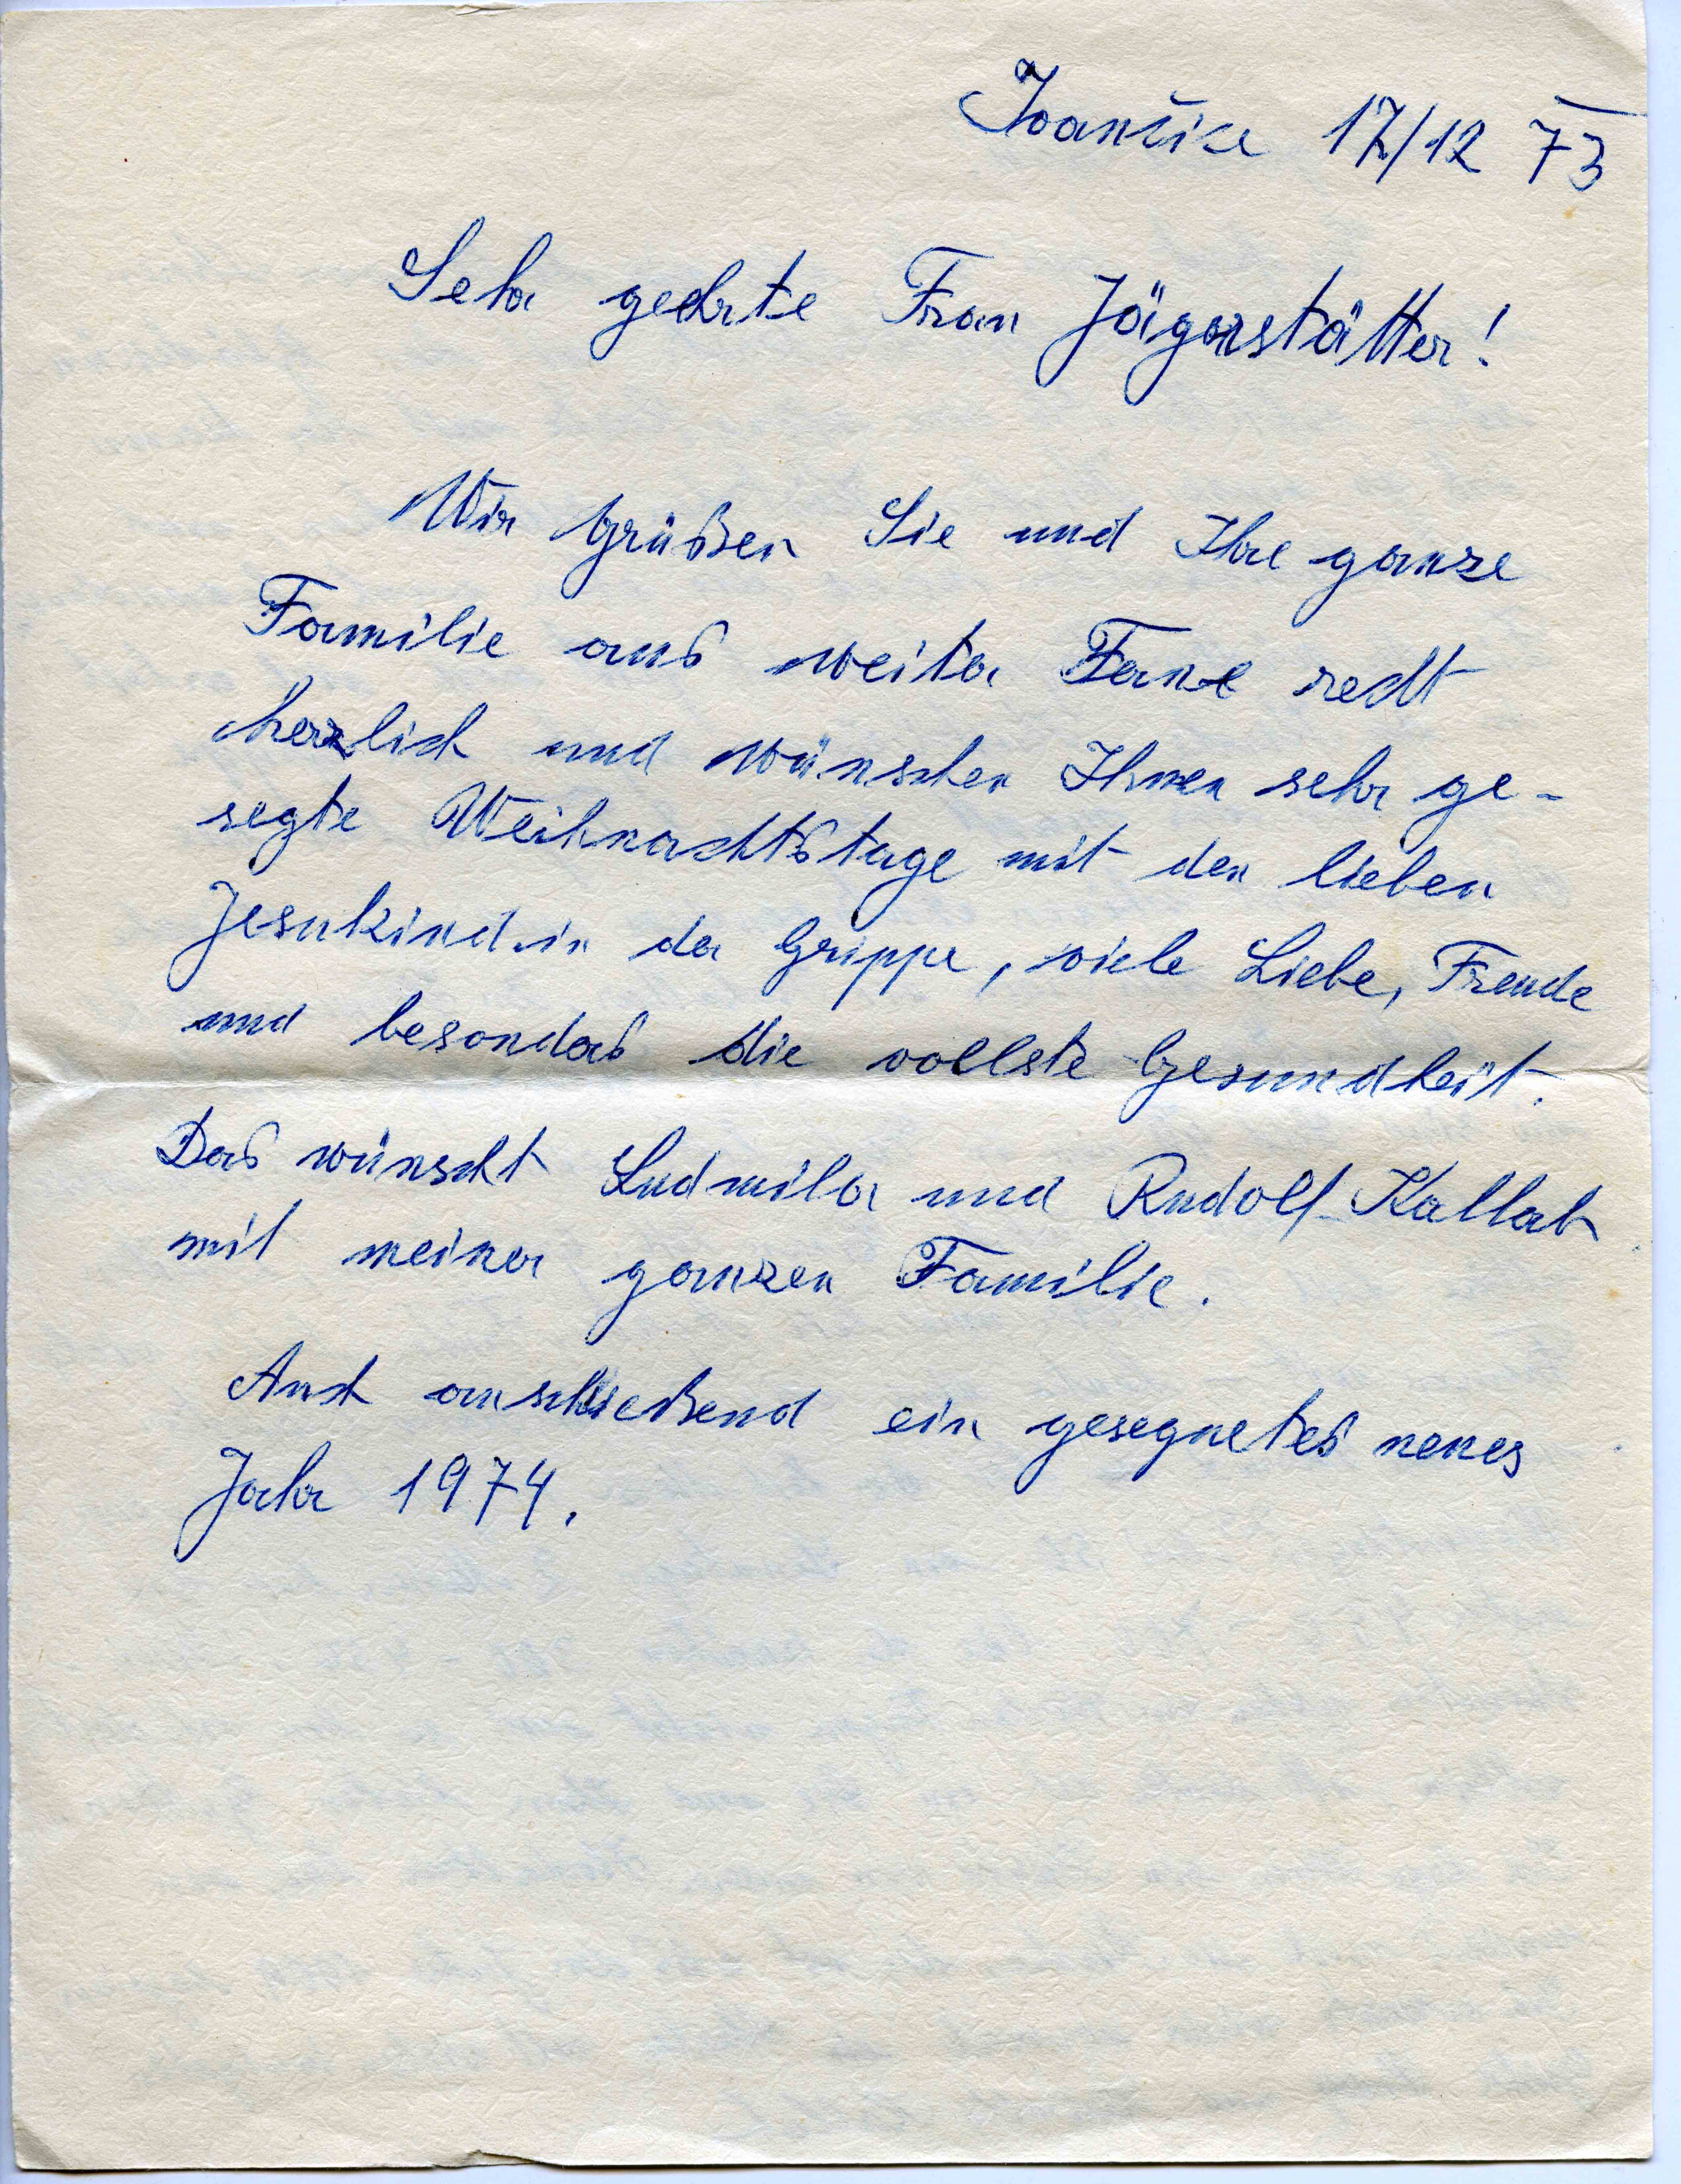 Ivančice 17/12 73
Sehr geehrte Frau Jägerstätter!
Wir Grüßen Sie und Ihre ganze
Familie aus weiter Ferne recht
herzlich und wünschen Ihnen sehr ge-
segte Weihnachtstage mit den lieben
Jesukind in der Grippe, viele Liebe, Freude
und besonders die vollste Gesundheit.
Das wünscht Ludmila und Rudolf Kallab
mit meiner ganzen Familie.
Auch anschließend ein gesegnetes neues
Jahr 1974.